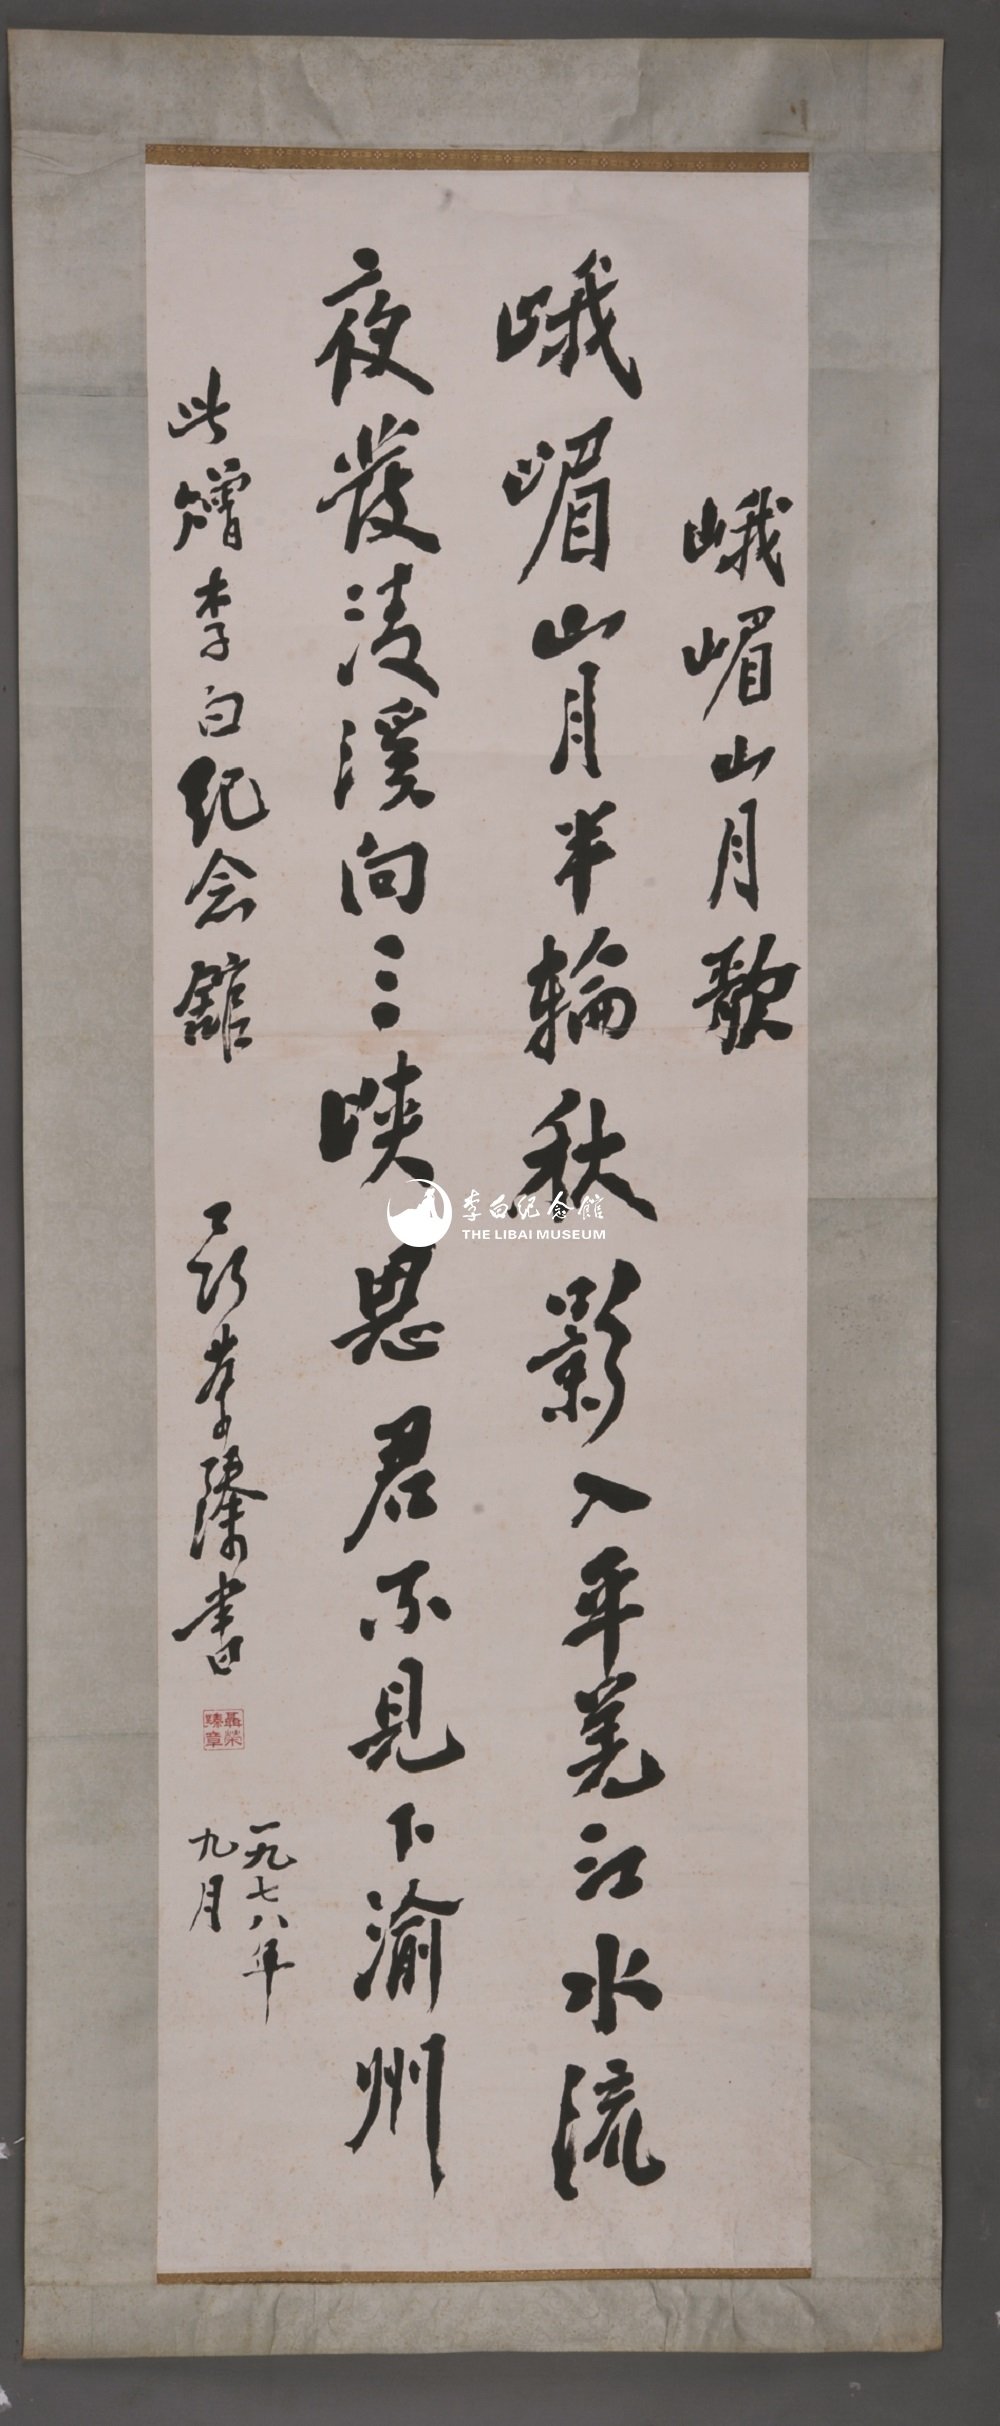 峨嵋山月歌
峨嵋山月半輪秋影入平羌江水流
夜發清溪向三峡思君不見下渝州
此赠李白纪念館 聂荣臻書
聶榮臻章
一九七八年
九月
李白纪念館
THE LIBAI MUSEUM